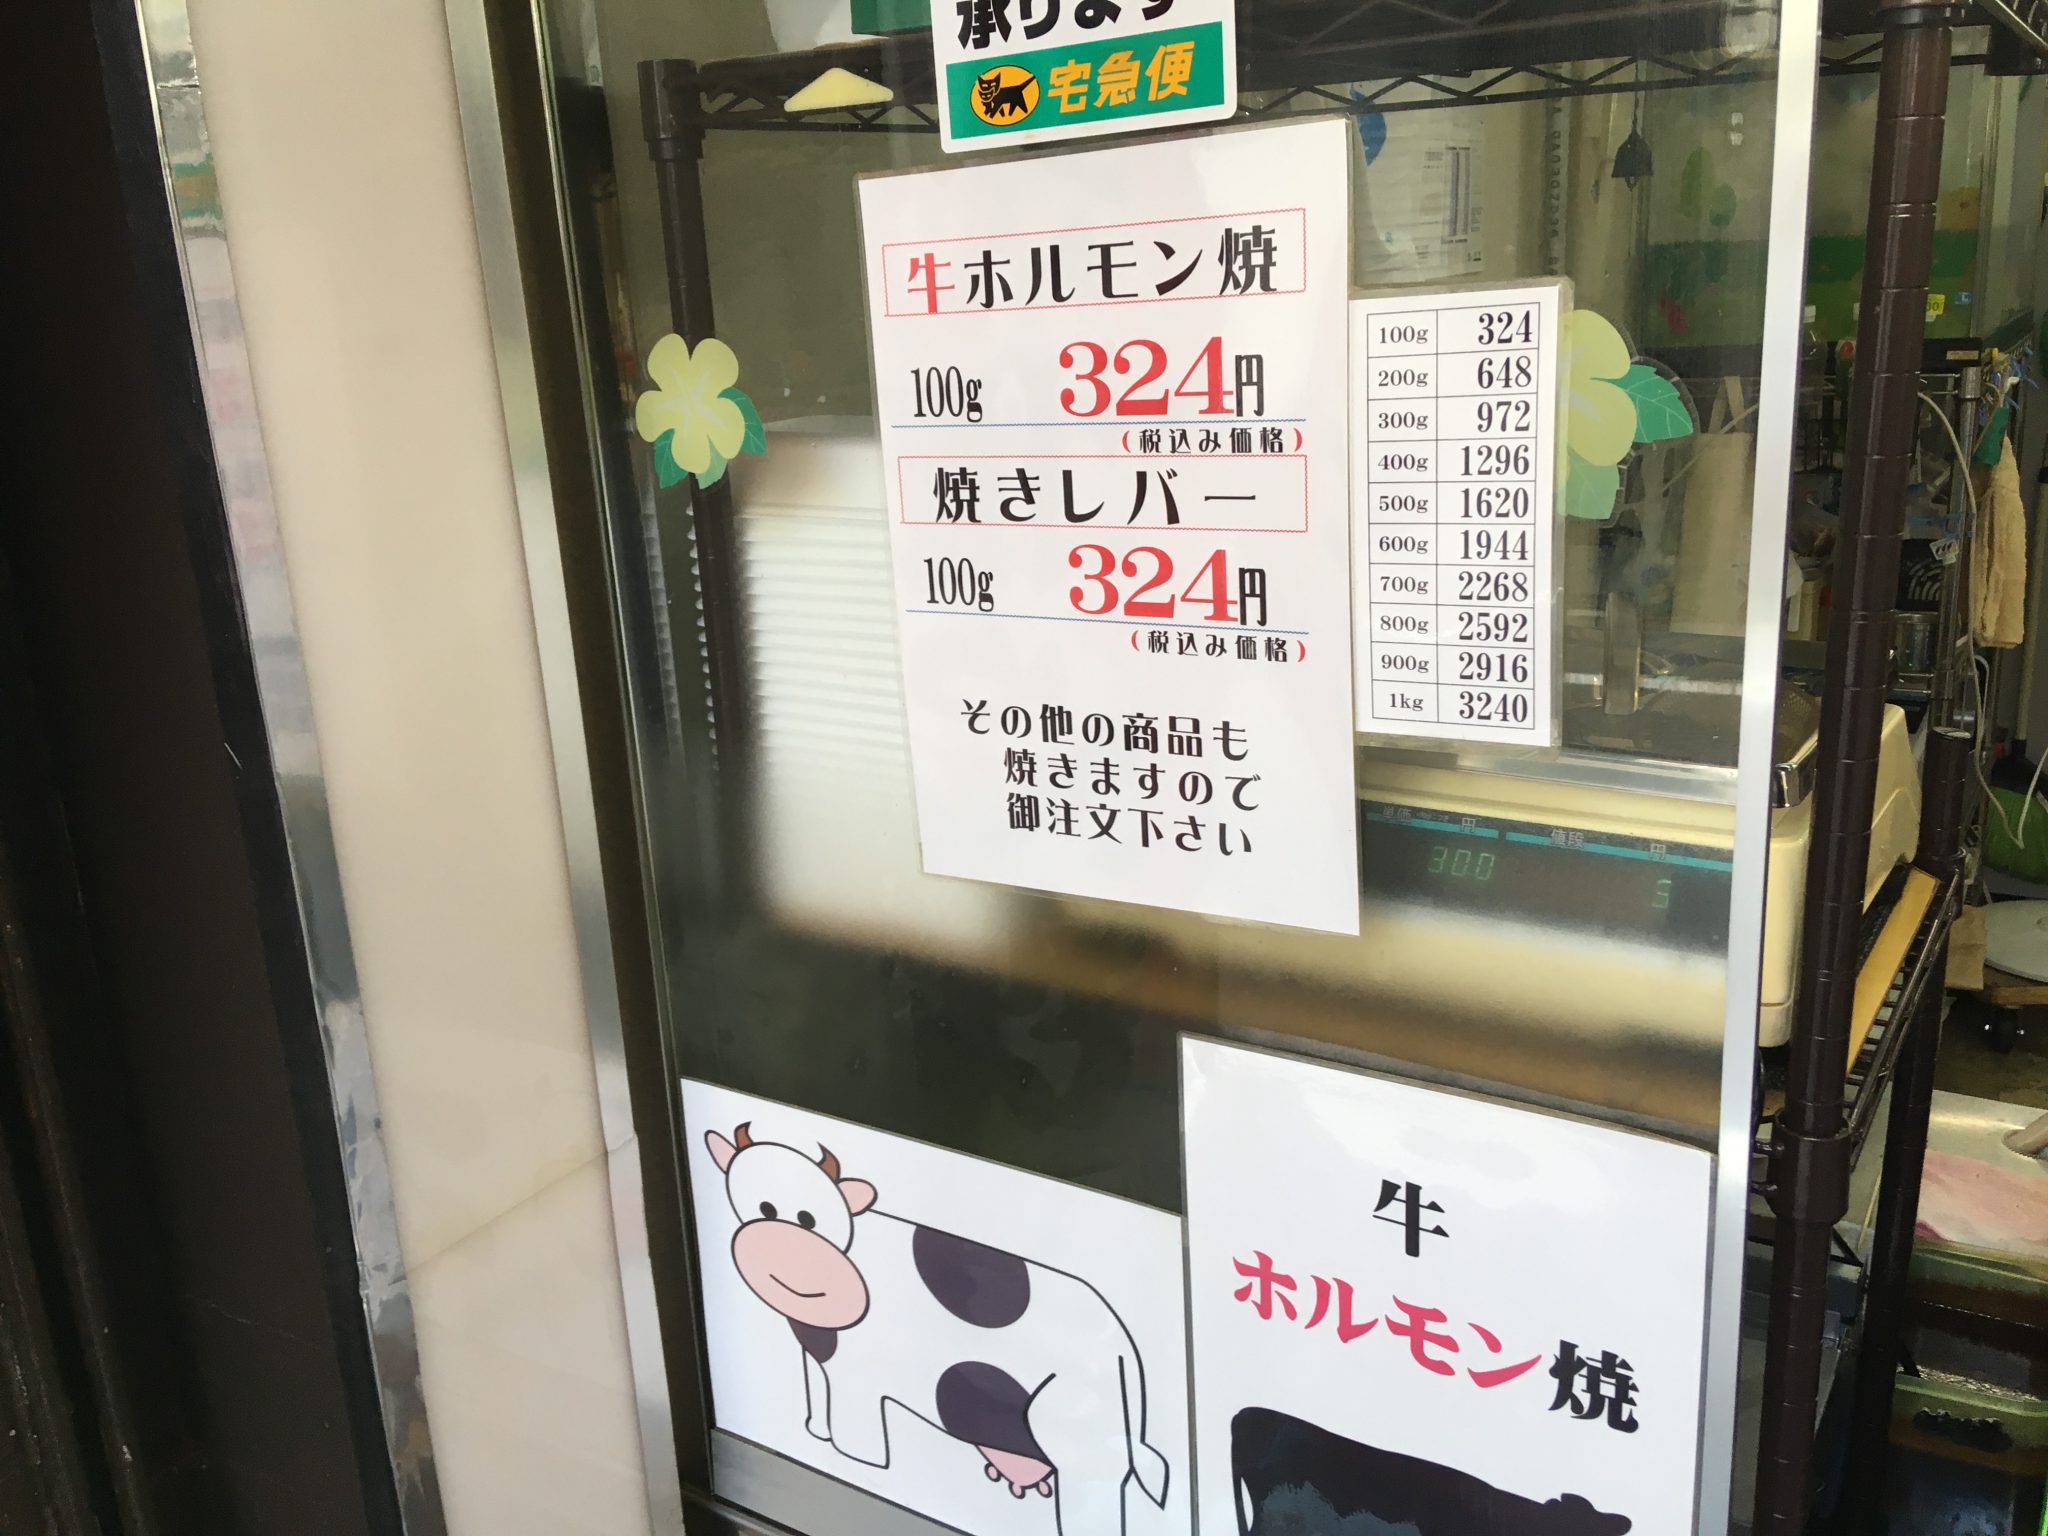 承ります
宅急便
牛ホルモン焼
100g 324円
(税込み価格)
焼きレバー
100g 324円
(税込み価格)
その他の商品も
焼きますので
御注文下さい
100g 324
200g 648
300g 972
400g 1296
500g 1620
600g 1944
700g 2268
800g 2592
900g 2916
1kg 3240
単価 円 値段 円
300
牛
ホルモン焼